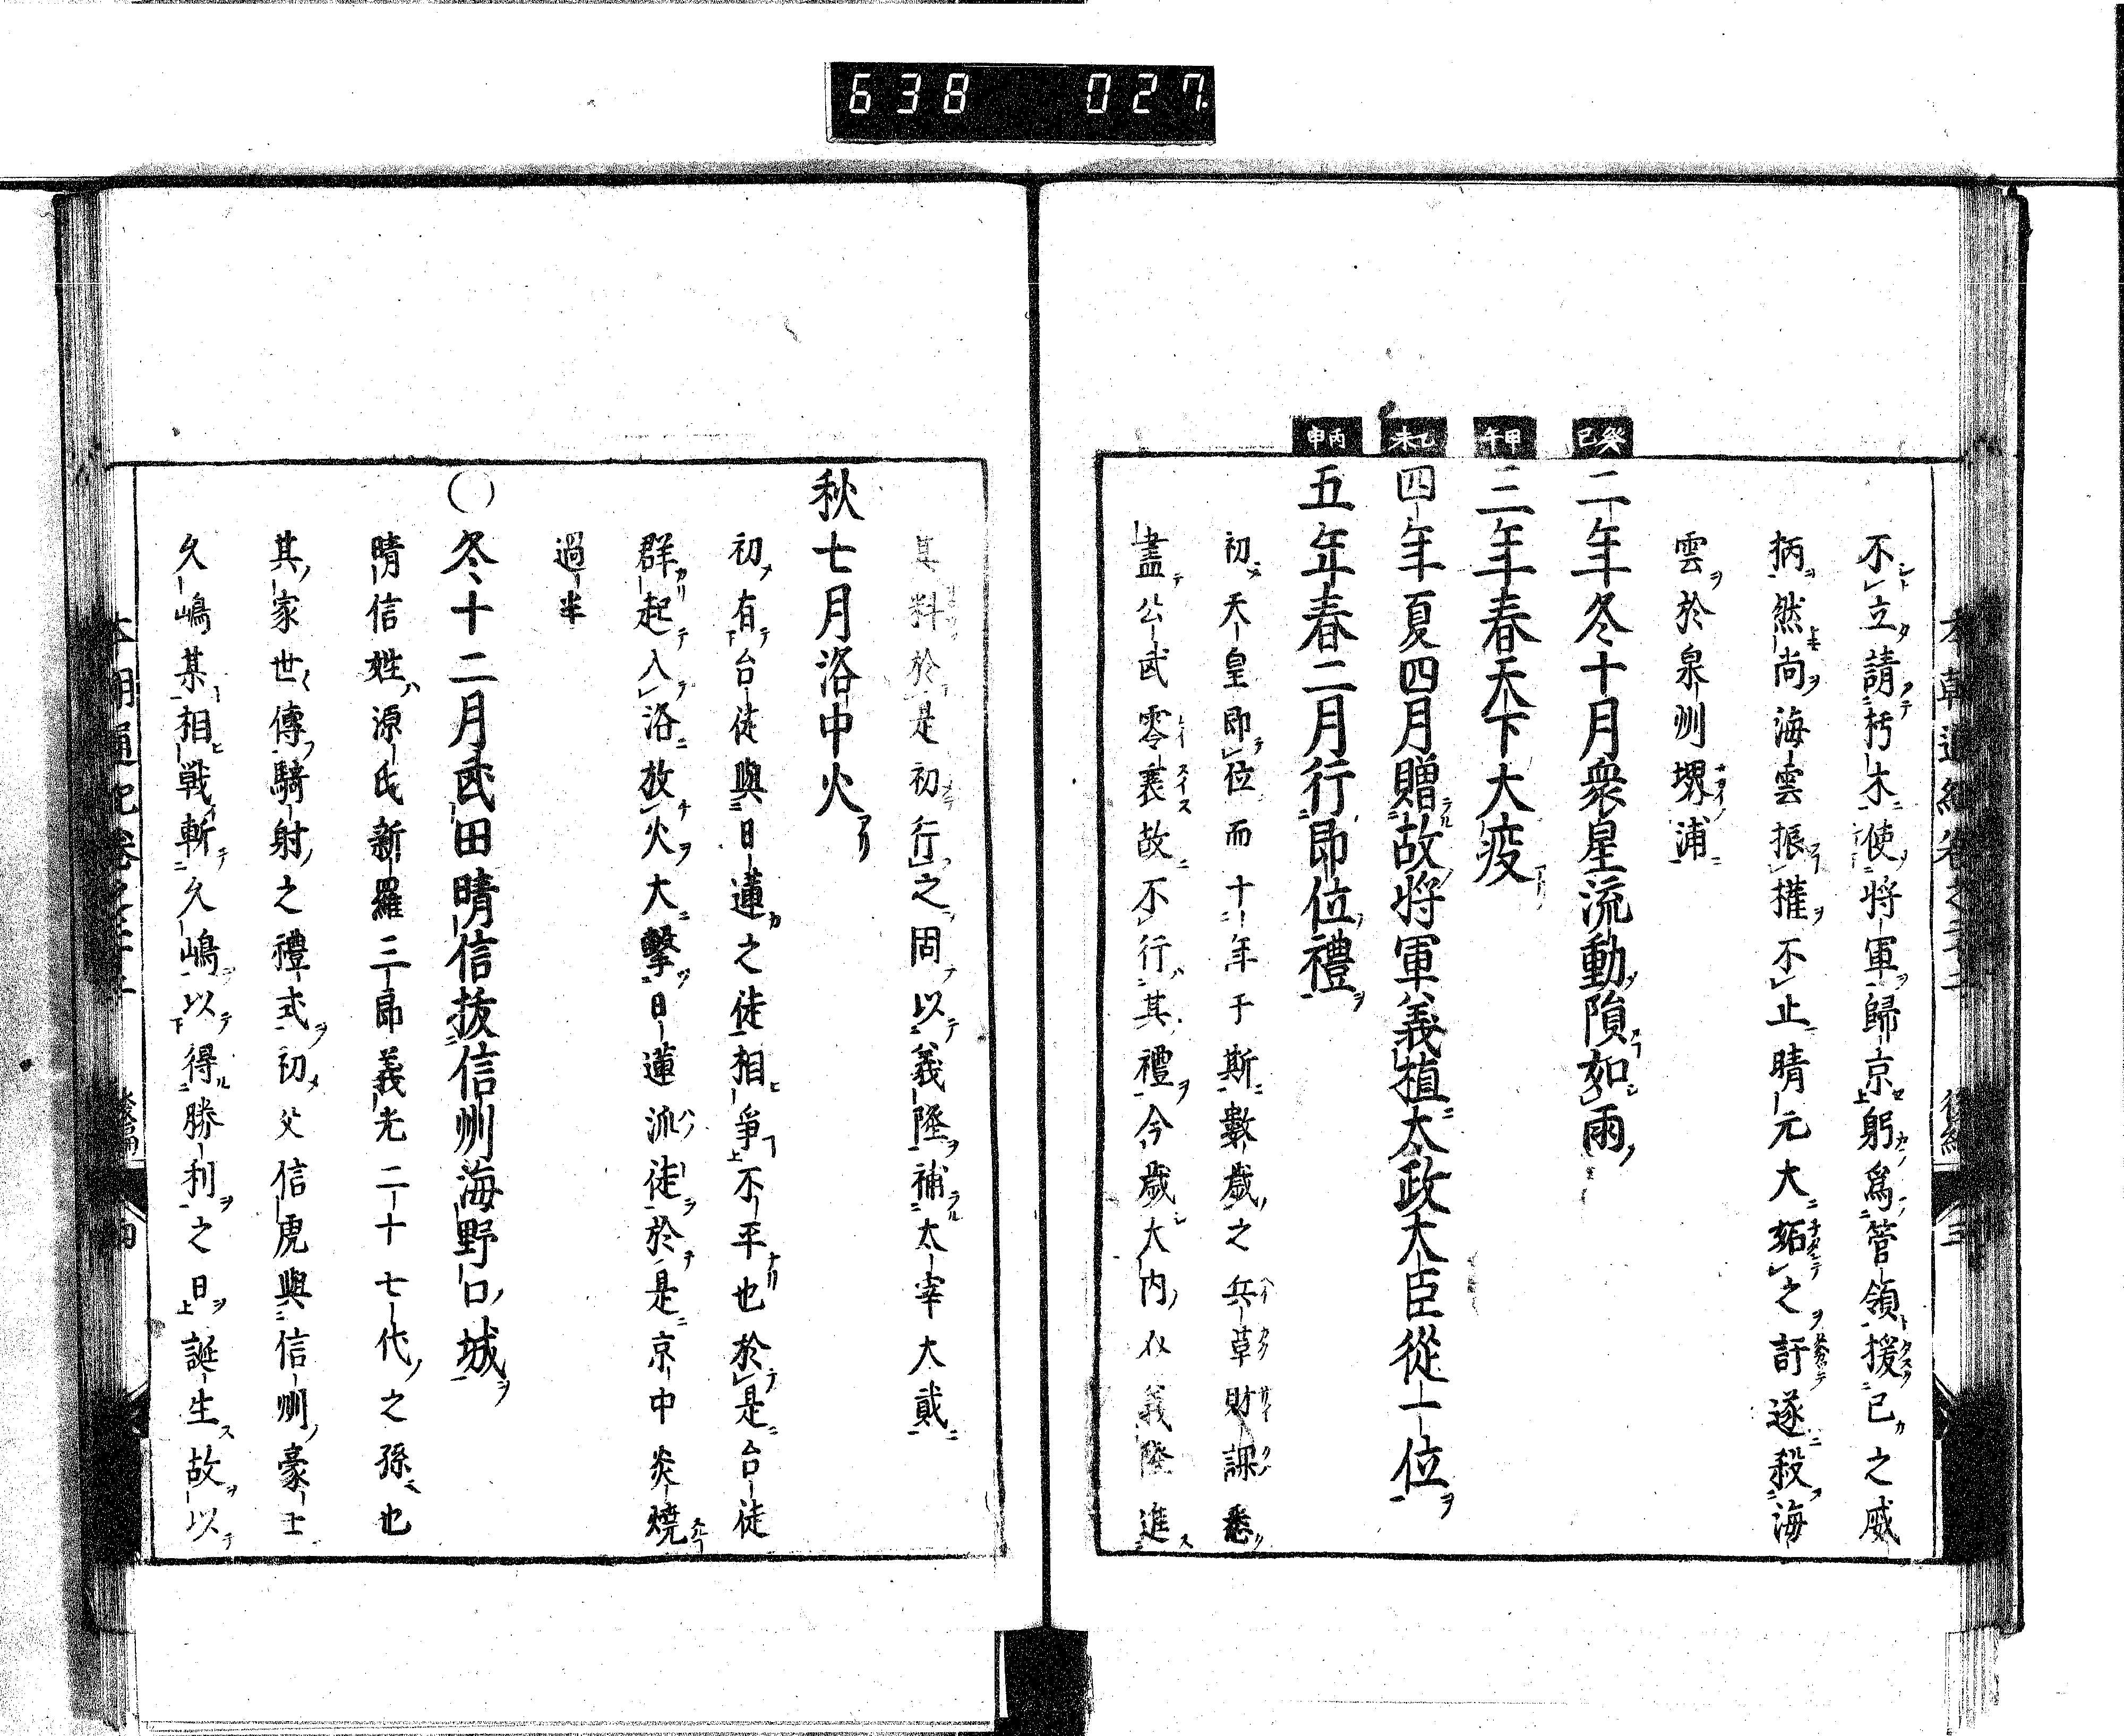 638 027
不立請朽木使將軍歸京躬爲管領援己之威
柄然尚海雲振權不止晴元大妬之訝遂殺海
雲於泉州堺浦
癸巳
二年冬十月衆星流動隕如雨
甲午
三年春天下大疫
乙未
四年夏四月贈故將軍義植太政大臣從一位
丙申
五年春二月行即位禮
初天皇即位而十年于斯數歲之兵革財課悉
盡公武零衰故不行其禮今歲大內義隆進
其料於是初行之因以義隆補太宰大貳
秋七月洛中火
初有台徒與日蓮之徒相爭不平也於是台徒
群起入洛放火大擊日蓮派徒於是京中炎燒
過半
〇冬十二月武田晴信拔信州海野口城
晴信姓源氏新羅三郎義光二十七代之孫也
其家世傳騎射之禮式初父信虎與信州豪士
久嶋某相戰斬久嶋以得勝利之日誕生故以